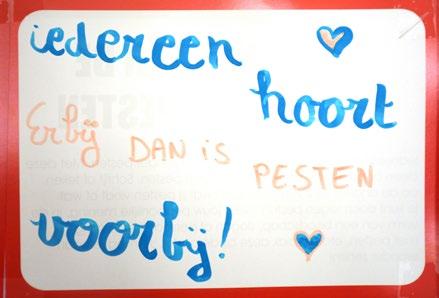 iedereen
hoort
Erbij DAN is PESTEN
voorbij!